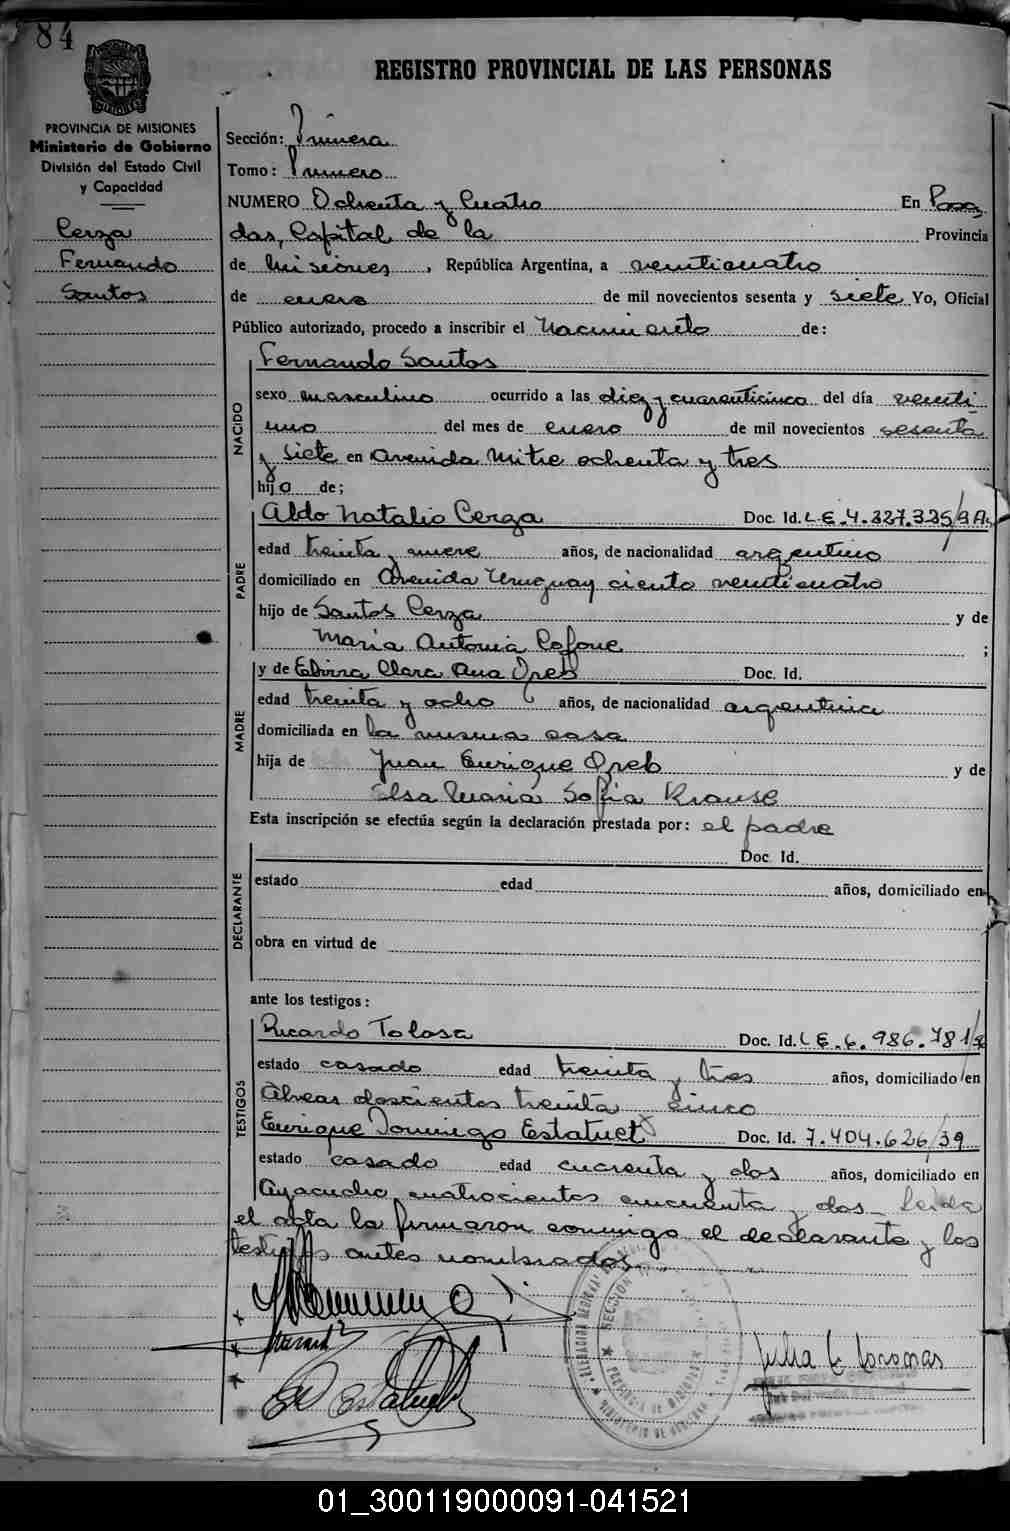 84
REGISTRO PROVINCIAL DE LAS PERSONAS
PROVINCIA DE MISIONES
Ministerio de Gobierno
División del Estado Civil
y Capacidad
Cerza
Fernando
Santos
Sección: Primera
Tomo: Primero
NUMERO Ochenta y Cuatro En Posa
das, Capital de la Provincia
de Misiones, República Argentina, a veinticuatro
de enero de mil novecientos sesenta y siete Yo, Oficial
Público autorizado, procedo a inscribir el Nacimiento de:
NACIDO
Fernando Santos
sexo masculino ocurrido a las diez y cuarenticinco del día veinti
uno del mes de enero de mil novecientos sesenta
y siete en Avenida Mitre ochenta y tres
hijo de;
PADRE
Aldo Natalio Cerza Doc. Id. L.E. 4.227.325/
edad treinta y nueve años, de nacionalidad argentino
domiciliado en Avenida Uruguay ciento veinticuatro
hijo de Santos Cerza y de
Maria Antonia Cofone ;
MADRE
y de Elvira Clara Ana Oreb Doc. Id.
edad treinta y ocho años, de nacionalidad argentina
domiciliada en la misma casa
hija de Juan Enrique Oreb y de
Elsa Maria Sofia Krause
Esta inscripción se efectúa según la declaración prestada por: el padre
DECLARANTE
Doc. Id.
estado edad años, domiciliado en
obra en virtud de
ante los testigos:
TESTIGOS
Ricardo Tolosa Doc. Id. L E. 6. 986. 781/
estado casado edad treinta y tres años, domiciliado en
doscientos treinta y cinco
Enrique Domingo Estatuet Doc. Id. 7.404.626/39
estado casado edad cuarenta y dos años, domiciliado en
Ayacucho cuatrocientos cincuenta y dos_ Leida
el acta la firmaron conmigo el declarante y los
testigos antes nombrados.
SECCION
PROVINCIA DE MISIONES
MINISTERIO DE GOBIERNO
01_300119000091-041521